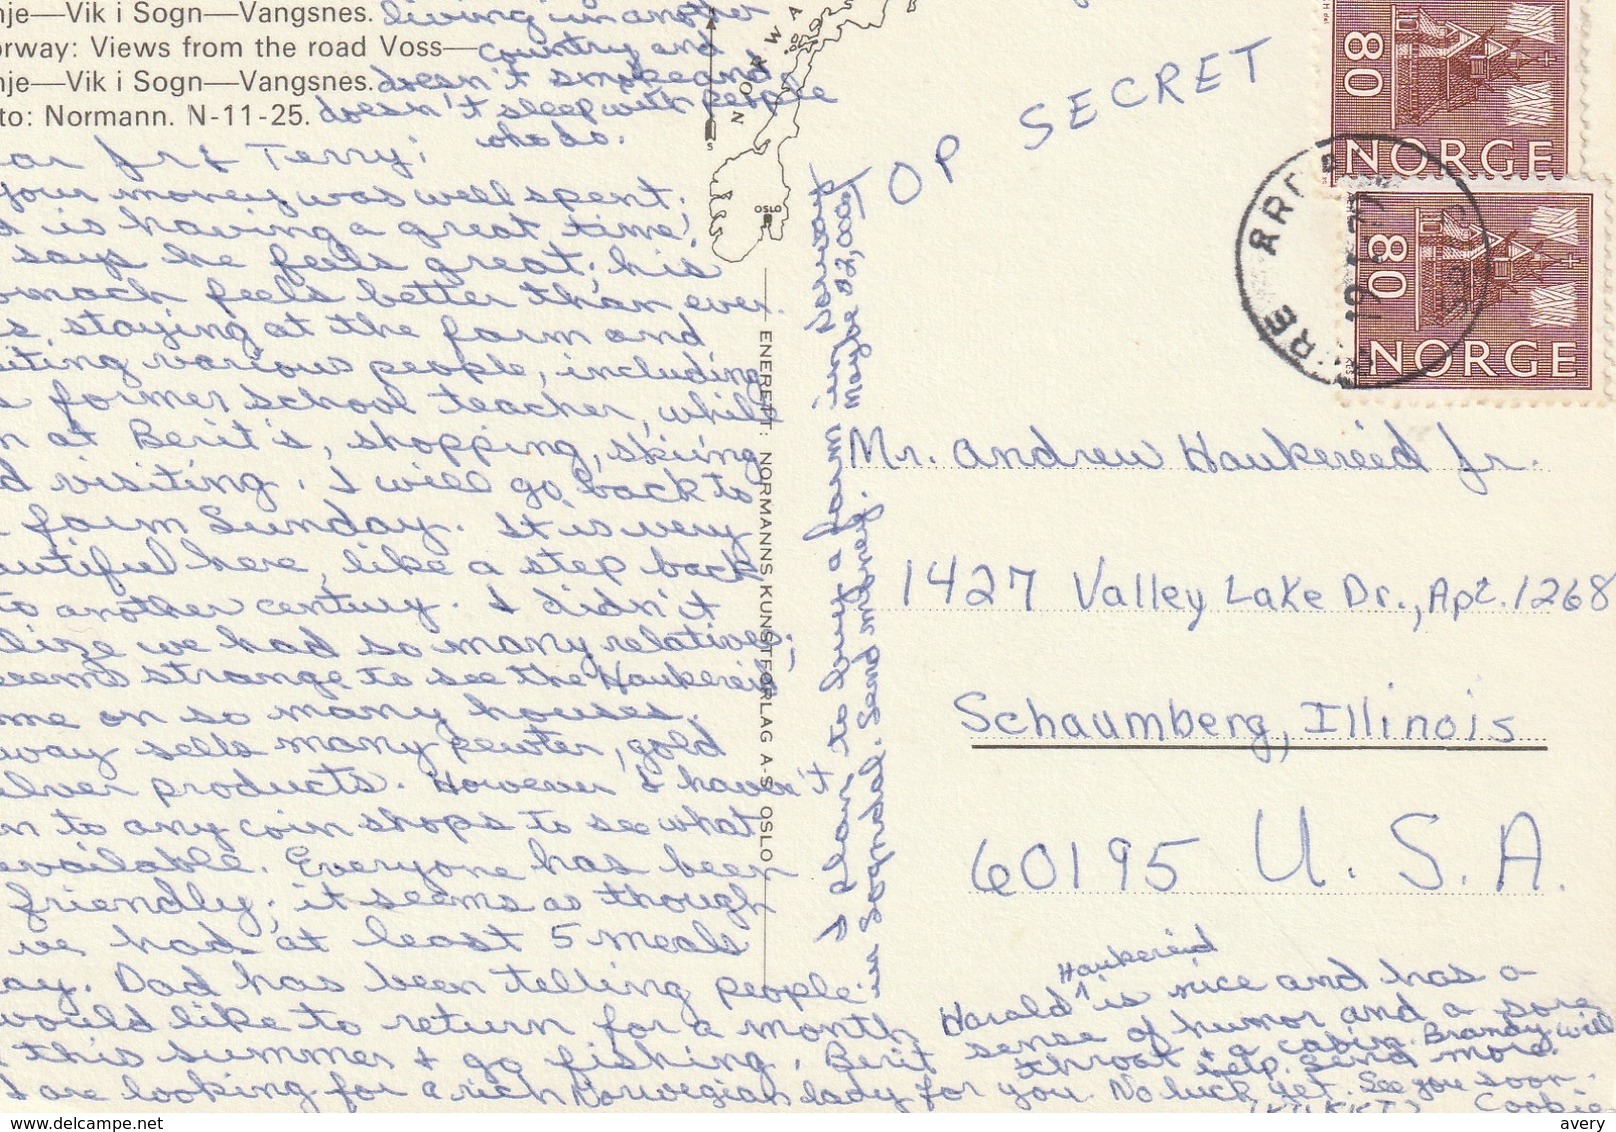 nje—Vik i Sogn—Vangsnes. living in another
orway: Views from the road Voss— country and
nje—Vik i Sogn—Vangsnes. doesn't smoke and
to: Normann. N-11-25. doesn't sleep with people
who do.
ar Jr & Terry;
your money was well spent.
d is having a great time,
says he feels great; his
omach feels better than ever.
s staying at the farm and
iting various people, including
s former school teacher, while
m at Berit's, shopping, skiing
d visiting. I will go back to
farm Sunday. It is very
autiful here, like a step back
to another century. I didn't
lize we had so many relatives;
eems strange to see the Haukereid
me on so many houses.
way sells many pewter, gold
ilver products. However I haven't
en to any coin shops to see what
available. Everyone has been
friendly; it seems as though
we had at least 5 meals
ay. Dad has been telling people
would like to return for a month
this summer & go fishing. Berit
I are looking for a rich Norwegian lady for you. No luck yet. See you soon.
Cookie
NORW
S
OSLO
ENERETT: NORMANNS KUNSTFORLAG A-S OSLO
I plan to buy a farm in
maybe 22,000
Send money.
TOP SECRET
08
NORGE
08
NORGE
Mr. Andrew Haukereid Jr.
1427 Valley Lake Dr., Apt. 1268
Schaumberg, Illinois
60195 U.S.A.
Haukereid
Harald ^ is nice and has a
sense of humor and a sore
throat & a cabin. Brandy will
help. Send more.
avery